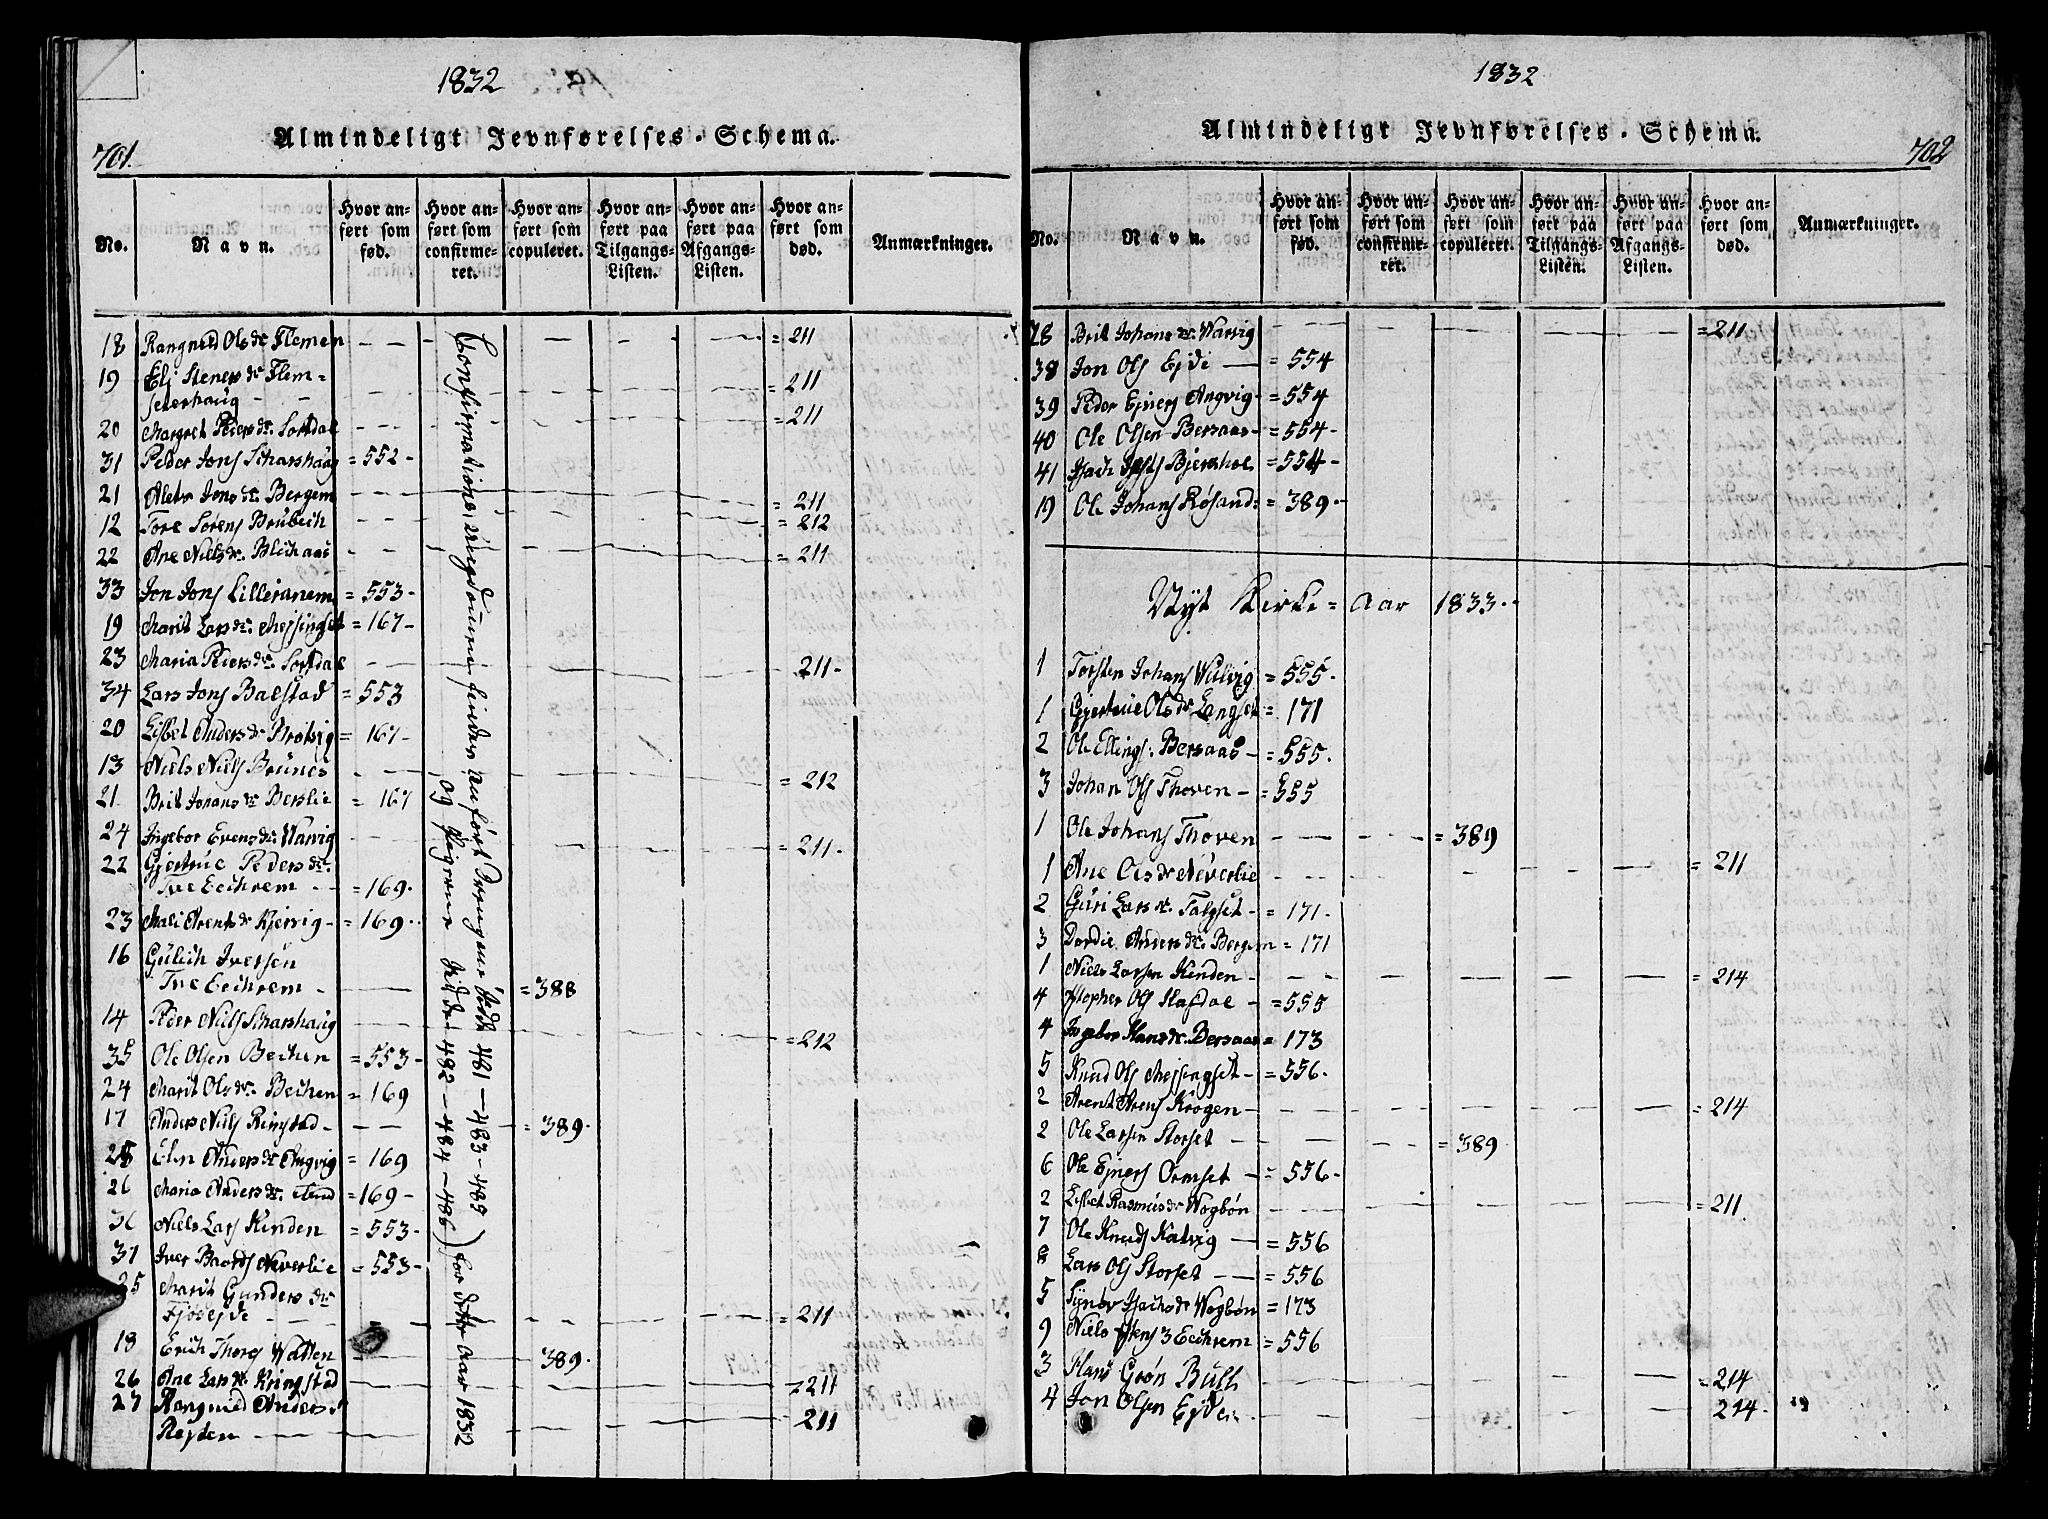 1832
Almindeligt Jevnførelses-Schema.
701.
No.
Navn.
Hvor anført som fød.
Hvor anført som confirmeret.
Hvor anført som copuleret.
Hvor anført paa Tilgangs-Listen.
Hvor anført paa Afgangs-Listen.
Hvor anført som død.
Anmærkninger.
18 Rangnild Olsdr Flemen = 211
19 Eli Stenersdr Flem=
seterhaug = 211
20 Margret Pedersdr. Sortdal = 211
31 Peder Jons Scharshaug = 552-
21 Jonsdr. Bergem = 211
12 Tore Sørens Brubech = 212
22 Ane Nielsdr. Blichaas = 211
33 Jon Jons Lilleranem = 553-
19 Marit Larsdr. Messingset = 167-
23 Maria Pedersdr. Sortdal 211-
34 Lars Jons Balstad = 553
20 Lisbet Andersdr = 167-
13 Niels Niels Brunes = 212
21 Brit Johansdr Berslie = 167
24 Ingebor Evensdr. Warvig = 211-
22 Gjertrue Pedersdr.
Tve Eechrem = 169-
23 Mali Arentsdr Kjervig = 169-
16 Gulich Iversen
Tve Eechrem = 388
14 Peder Niels Scharshaug = 212
35 Ole Olsen Bechen = 553-
24 Marit Olsdr. Bechen = 169
17 Anders Niels Rimstad = 389-
25 Elen Andersdr Angvig = 169
26 Maria Andersdr. = 169-
36 Niels Lars Kinden = 553-
37 Iver Baards Neverlie = 553-
25 Marit Gundersdr
Fjøsejde = 211
18 Erich Thores Watten 389-
26 Ane Larsdr. Kringstad = 211
27 Rangnild Andersdr
Rejten = 211
Confirmations, anført Drengene Side 481-483-485
og Pigerne Side 482-484-486) for dette Aar 1832
1832
Almindeligt Jevnførelses-Schema.
702
No.
Navn.
Hvor anført som fød.
Hvor anført som confirmeret.
Hvor anført som copuleret.
Hvor anført paa Tilgangs-Listen.
Hvor anført paa Afgangs-Listen.
Hvor anført som død.
Anmærkninger.
28 Brit Johansdr. Warvig = 211
38 Jon Ols Ejde = 554
39 Peder Ejners Angvig = 554
40 Ole Olsen Bersaas = 554-
41 Bjerkhol = 554-
19 Ole Johans Røsand = 389-
Nyt Kirke=Aar 1833.
1 Torsten Johans = 555-
1 Gjertrue Olsdr Engset = 171
2 Ole Ellings. Bersaas = 555.
3 Johan Ols Thoven = 555
1 Ole Johans Thoven = 389
1 Ane Olsdr Neverlie = 211
2 Guri Larsdr. Talgset = 171-
3 Dordie Andersdr. Bergem = 171
1 Niels Larsen Kinden = 214
4 Ols = 555
4 Ingebor Hansdr. Bersaas = 173
5 Knud Ols Messingset = 556-
2 Arent Arens Krogen = 214
2 Ole Larsen Storset = 389
6 Ole Ejners Ormset = 556-
2 Lisbet Rasmusdr Wogbøn = 211
7 Ole Knuds Kalvig = 556
8 Lars Ols Storset = 556
5 Synøv Isachsdr Wogbøn = 173
9 Niels Eechrem = 556
3 Hans Grøn Bull = 214
4 Jon Olsen Ejde 214-